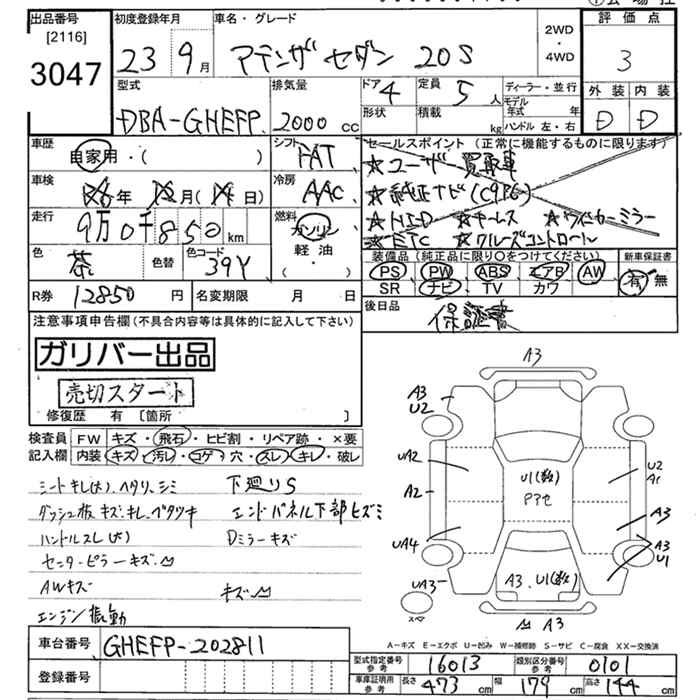 出品番号 初度登録年月 車名・グレード 2WD・4WD 評価点
[2116]
3047
23 9月 アテンザ セダン 20S
3
型式 排気量 ドア 4 定員 5人 ディーラー・並行 外装 内装
DBA-GHEFP 2000cc 形状 積載 kg モデル年式 年 ハンドル 左・右 D D
車歴 自家用・( ) シフト FAT セールスポイント (正常に機能するものに限ります)
★ユーザー買取車
車検 年 月( 日) 冷房 AAC ★純正ナビ(C9P6)
★HID ★キーレス ★ウインカーミラー
走行 9万0千850km 燃料 ガソリン・軽油・( ) ★ETC ★クルーズコントロール
色 茶 色替 色コード 39Y
装備品 (純正品に限り○をつけてください) 新車保証書
PS PW ABS エアB AW 有・無
SR ナビ TV カワ
R券 12850円 名変期限 月 日
後日品 保証書
注意事項申告欄(不具合内容等は具体的に記入して下さい)
ガリバー出品
売切スタート
修復歴 有 [箇所 ]
検査員記入欄 FW キズ・飛石・ヒビ割・リペア跡・×要
内装 キズ・汚レ・コゲ・穴・スレ・キレ・破レ
シートキレ(大)、ヘタリ、シミ 下廻りS
ダッシュ板キズ、キレ、ベタツキ エンドパネル下部ヒズミ
ハンドルスレ(大) Dミラーキズ
センターピラーキズ、凹
AWキズ キズ、凹
エンジン振動
A3
A3
U2
UA2
A2
UA4
UA3
スペア
U1(数)
Pアセ
U2
A1
A3
A3
U1
A3、U1(数)
凹 A3
A−キズ E−エクボ U−凹み W−補修跡 S−サビ C−腐食 XX−交換済
車台番号 GHEFP-202811
登録番号
型式指定番号 参考 16013 類別区分番号 参考 0101
車庫証明用 参考 長さ 473cm 幅 179cm 高さ 144cm